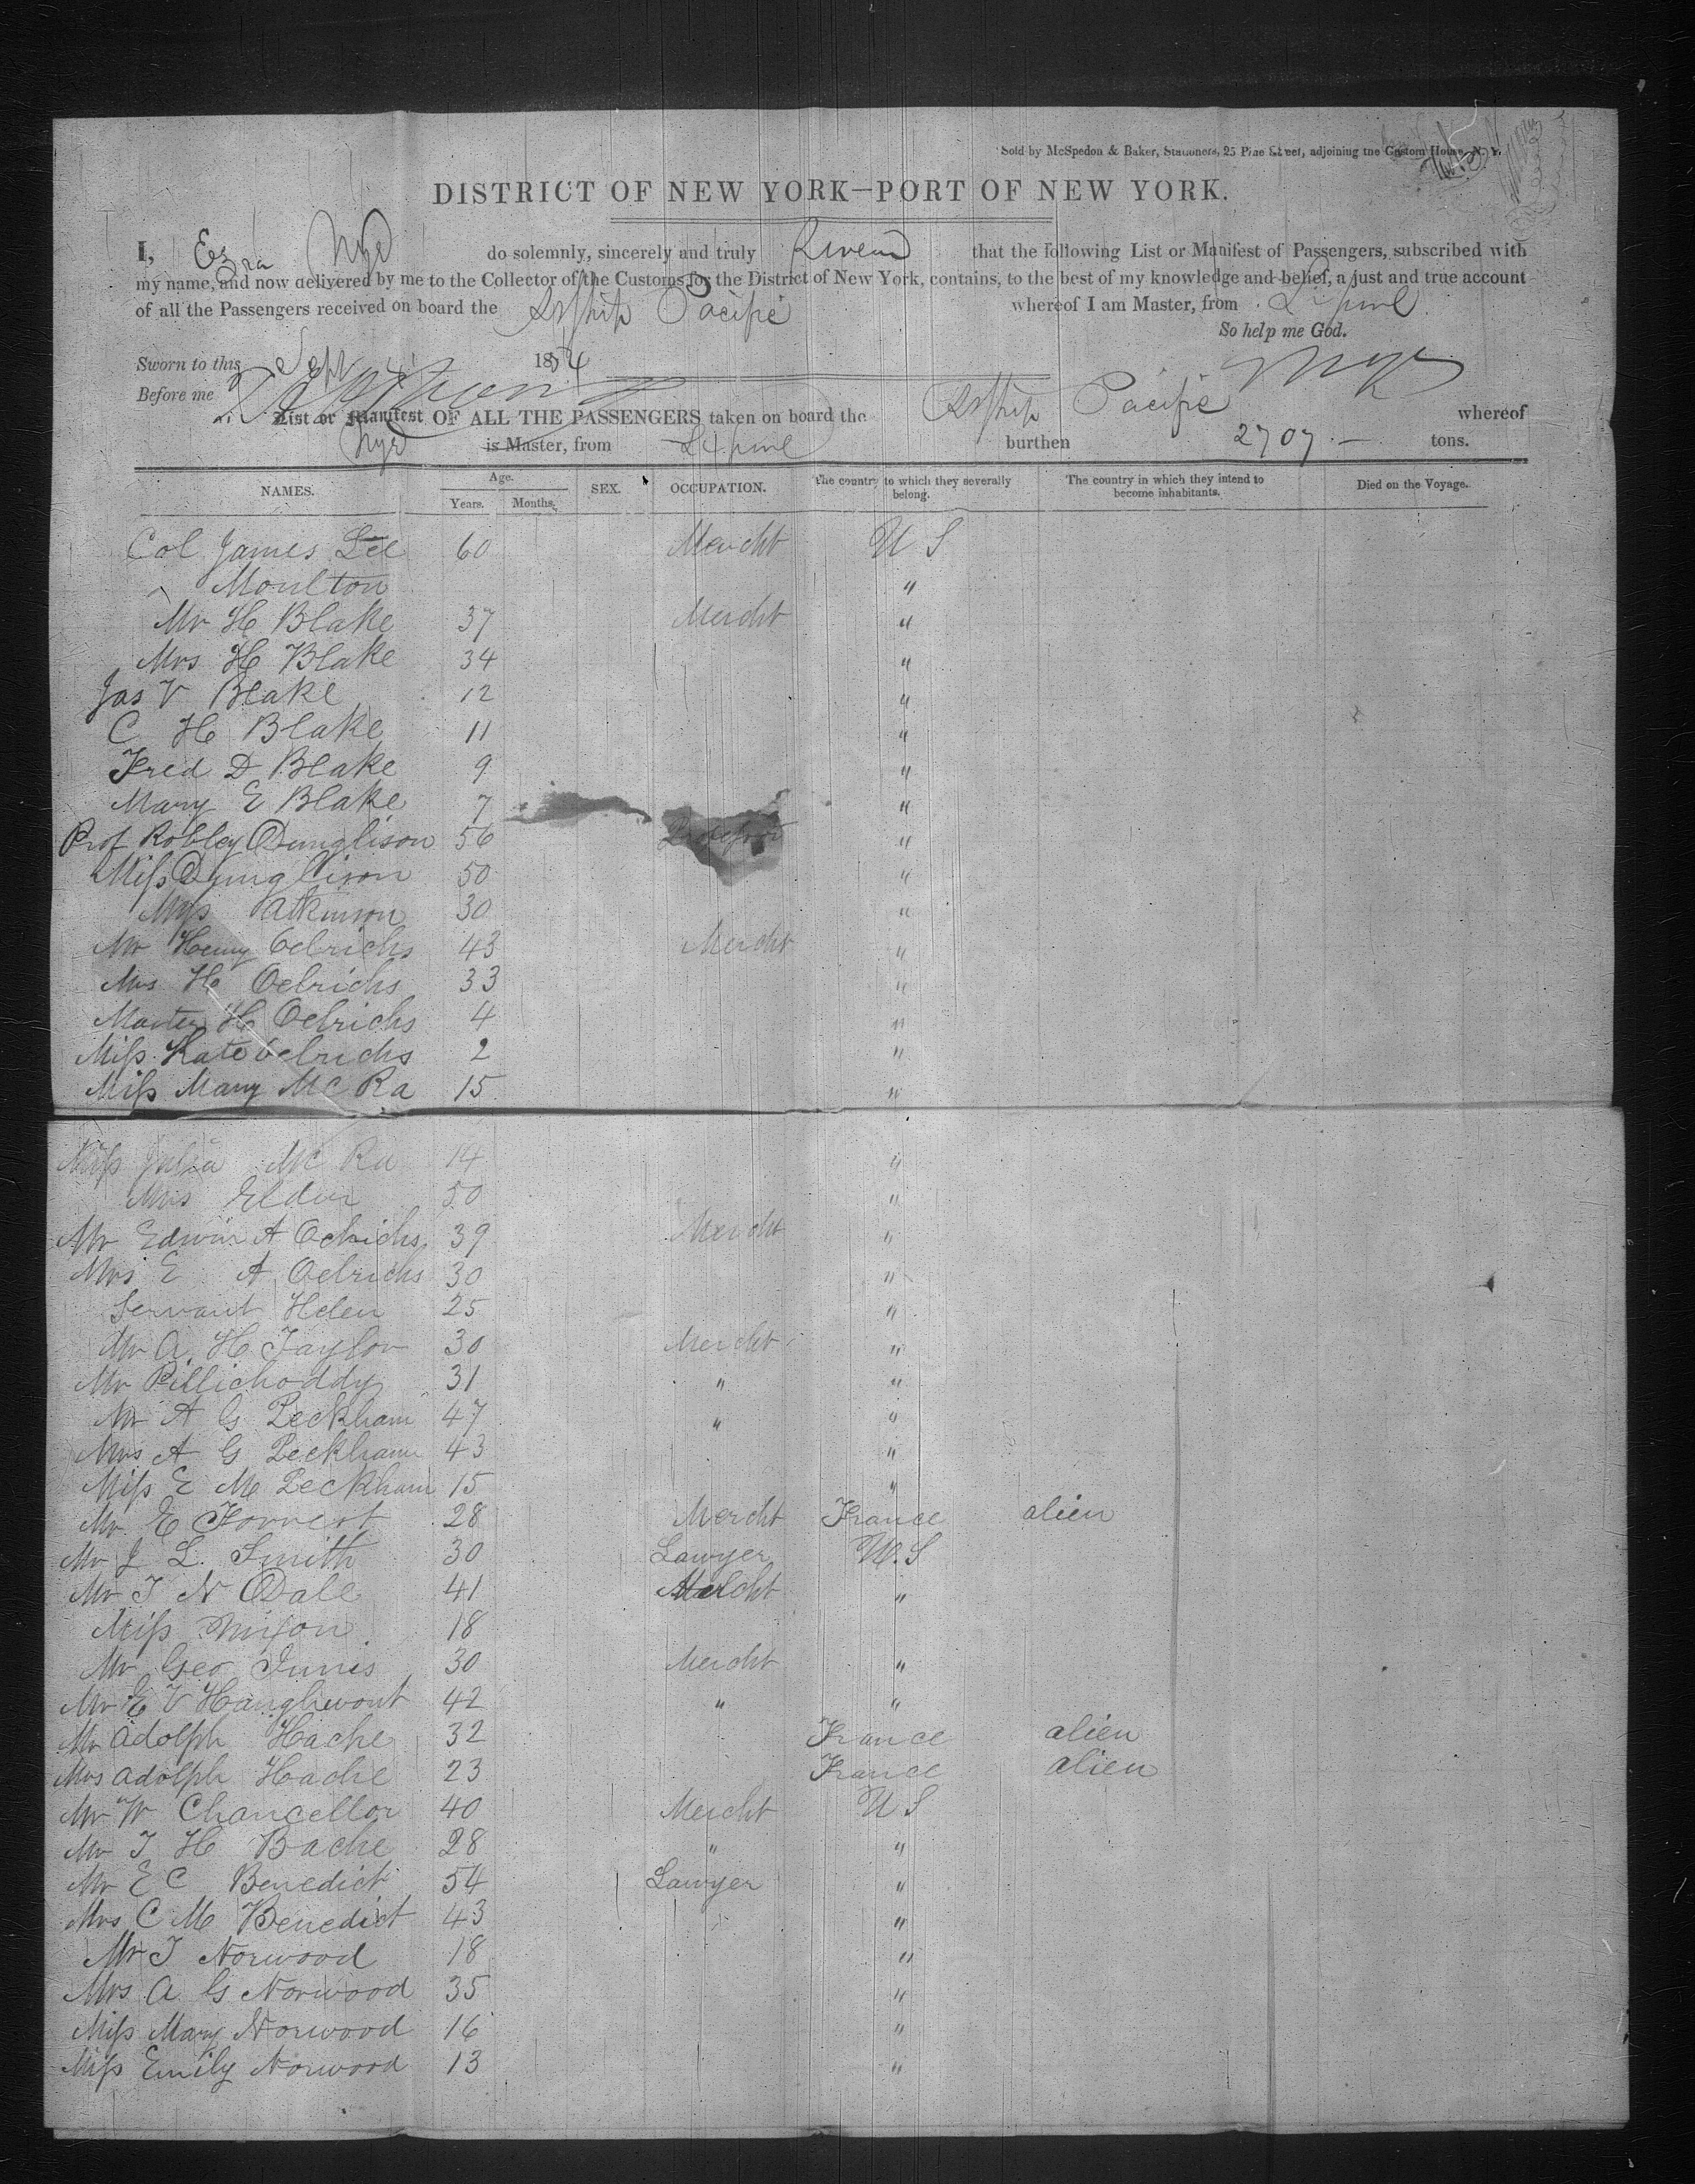 Sold by McSpedon & Baker, Stationers, 25 Pine Street, adjoining the Custom House, N. Y.
DISTRICT OF NEW YORK—PORT OF NEW YORK.
I, Ezra Nye do solemnly, sincerely and truly swear that the following List or Manifest of Passengers, subscribed with
my name, and now delivered by me to the Collector of the Customs for the District of New York, contains, to the best of my knowledge and belief, a just and true account
of all the Passengers received on board the Pacific whereof I am Master, from L'pool
So help me God.
Sworn to this Sept 1854
Before me Nye
List or Manifest OF ALL THE PASSENGERS taken on board the Pacific whereof
Nye is Master, from L'pool burthen 2707 — tons.
NAMES. Age. Years. Months. SEX. OCCUPATION. The country to which they severally belong. The country in which they intend to become inhabitants. Died on the Voyage.
Col James Lee 60 Mercht U S
Moulton "
Mr H Blake 37 Mercht "
Mrs H Blake 34 "
Jas V Blake 12 "
C H Blake 11 "
Fred D Blake 9 "
Mary E Blake 7 "
Prof Robley Dunglison 56 Professor "
Miss Dunglison 50 "
Miss Atkinson 30 "
Mr Henry Oelrichs 43 Mercht "
Mrs H Oelrichs 33 "
Master H Oelrichs 4 "
Miss Kate Oelrichs 2 "
Miss Mary McRa 15 "
Miss Julia McRa 14 "
Mrs Elder 50 "
Mr Edwin A Oelrichs 39 Mercht "
Mrs E A Oelrichs 30 "
Servant Helen 25 "
Mr A. H. Taylor 30 Mercht "
Mr Pillichoddy 31 " "
Mr A G Peckham 47 " "
Mrs A G Peckham 43 "
Miss E M Peckham 15 "
Mr E Forrest 28 Mercht France alien
Mr J L. Smith 30 Lawyer U.S
Mr T N Dale 41 Mercht "
Miss Nixon 18
Mr Geo Innis 30 Mercht "
Mr E V Haughwout 42 " "
Mr Adolph Hache 32 France alien
Mrs Adolph Hache 23 France alien
Mr W Chancellor 40 Mercht U S
Mr T H Bache 28 " "
Mr E C Benedict 54 Lawyer "
Mrs C M Benedict 43 "
Mr T Norwood 18 "
Mrs A G Norwood 35 "
Miss Mary Norwood 16 "
Miss Emily Norwood 13 "